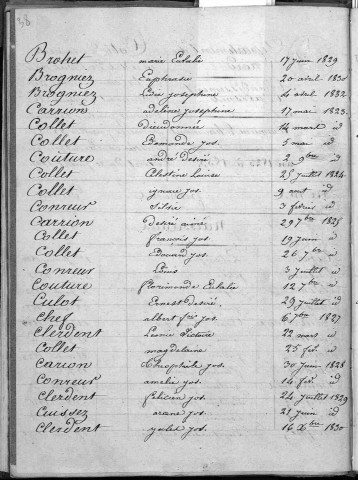 38
Brohet marie Eulalie 17 juin 1829
Brogniez Euphrasie 20 avril 1830
Brogniez Lidie josephine 4 avril 1832
Carrion adeline josephine 17 mai 1823
Collet Dieudonnée 14 mart id
Collet Bemonde jos. 5 mai id
Couture andré desiré 2 9bre id
Collet Célestine Louise 25 juillet 1824
Collet ignace jos. 9 aout id
Conreur Silvie 3 février id
Carrion desiré aimé 29 7bre 1825
Collet françois jos. 19 juin id
Collet Edouard jos. 26 7bre id
Conreur Louis 3 juillet id
Couture florimonde Eulalie 12 7bre id
Culot Ernest desiré 29 juillet id
Chef albert fois jos. 6 7bre 1827
Clerdent Leonie Victoire 22 mars id
Collet magdelaine 25 fer. id
Carion théophile jos. 30 juin 1828
Conreur amelie jos. 14 fer. id
Clerdent felicien jos. 24 juillet 1829
Cuissez arane jos. 21 juin id
Clerdent jules jos. 16 Xbre 1830